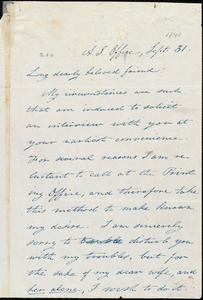 A. S. Office, Sept 31.
Long dearly beloved friend:
My circumstances are such
that am induced to solicit
an interview with you at
your earliest convenience.
For several reasons I am re-
luctant to call at the Print
ing Office, and therefore take
this method to make known
my desire. I am sincerely
sorry to disturb you
with my troubles, but for
the sake of my dear wife, and
her alone, I wish to do it